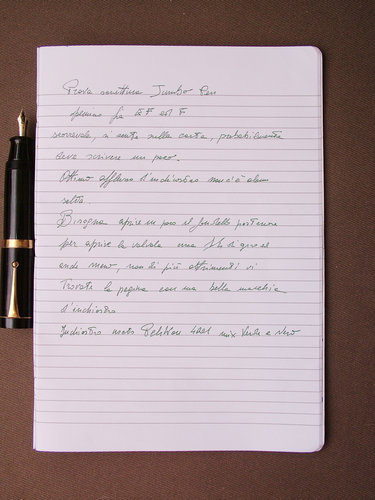 Prova scrittura Jumbo Pen
pennino fra EF ed F
scorrevole, si sente sulla carta, probabilmente
deve scrivere un poco.
Ottimo afflusso d'inchiostro non c'è alcun
salto.
Bisogna aprire un poco il fondello posteriore
per aprire la valvola ma
meno, non di più altrimenti vi
trovate la pagina con una bella macchia
d'inchiostro
Inchiostro nero Pelikan 4001 mix Verde e Nero